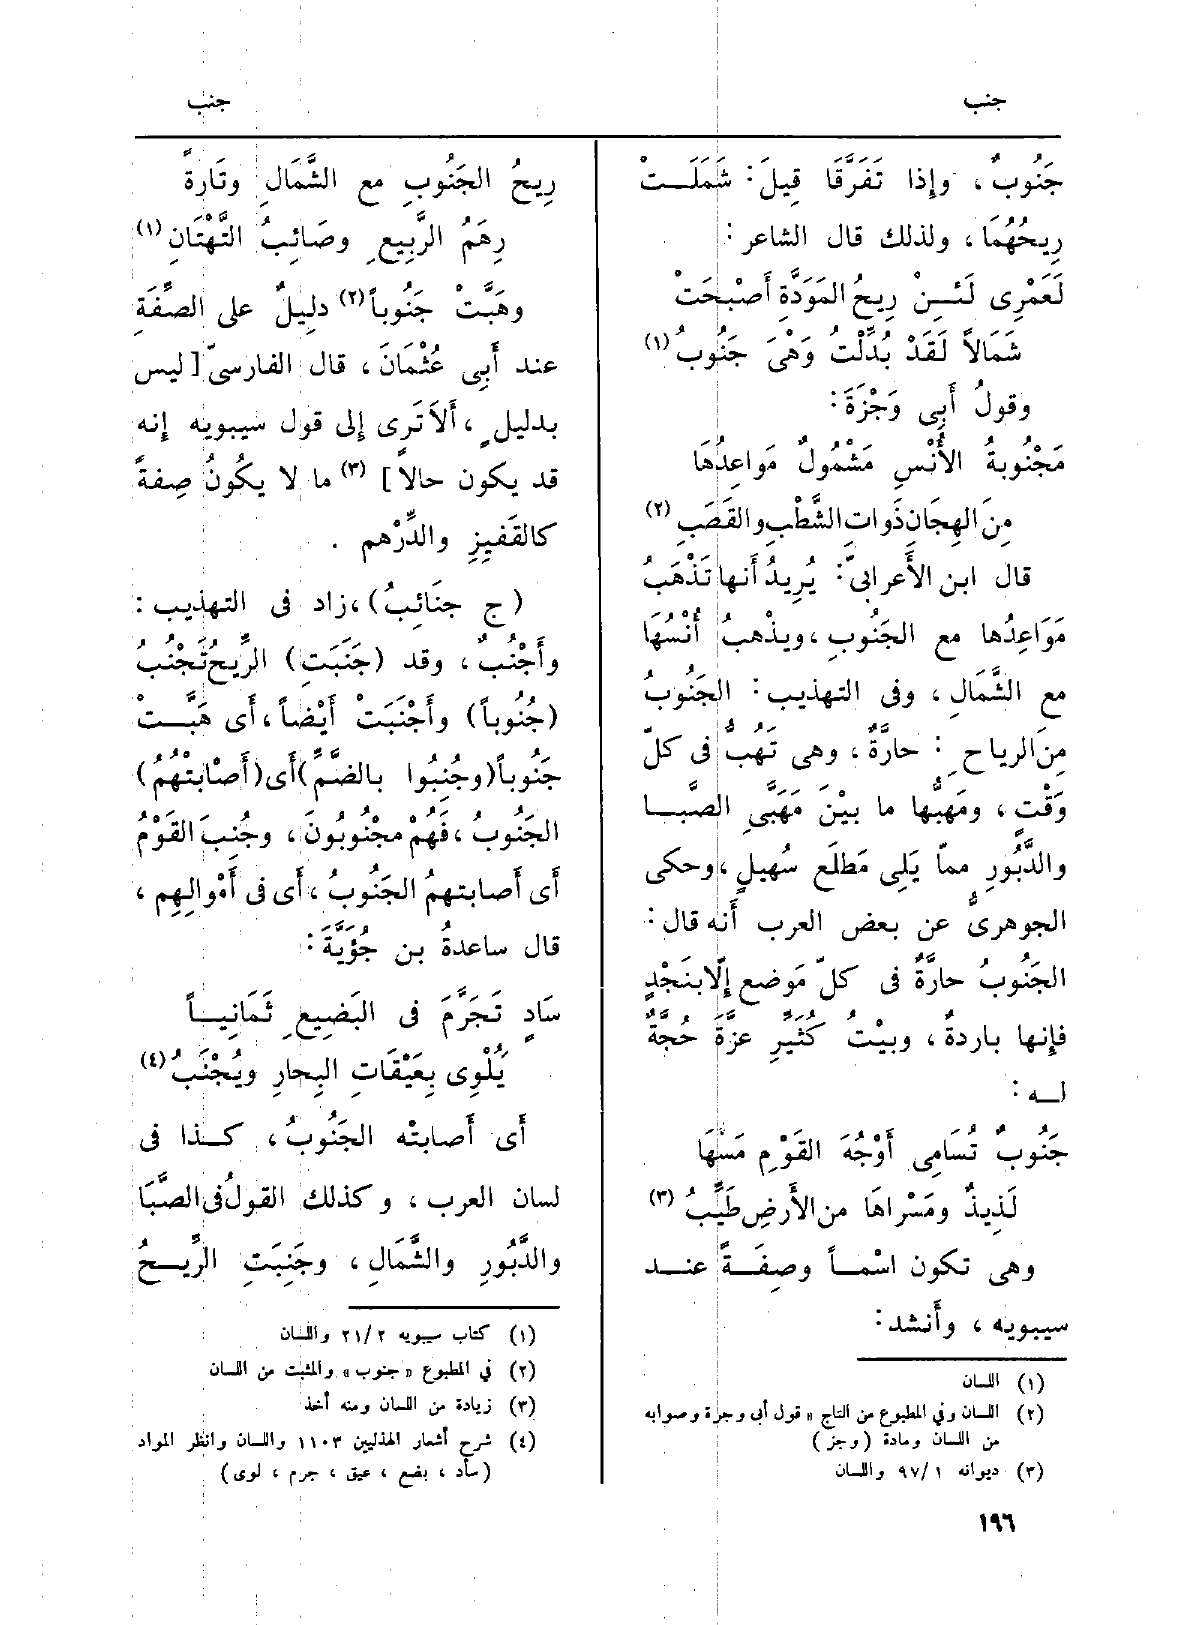 جنب
جنب
جَنُوبٌ، وإذا تَفَرَّقَا قِيلَ: شَمَلَــتْ
رِيحُهُمَا، ولذلك قال الشاعر:
لَعَمْرِى لَئِــنْ رِيحُ المَوَدَّةِ أَصْبَحَتْ
شَمَالاً لَقَدْ بُدِّلْتُ وَهْىَ جَنُوبُ (١)
وقولُ أَبِى وَجْزَةَ:
مَجْنُوبةُ الأُنْسِ مَشْمُولٌ مَواعِدُهَا
مِنَ الهِجَانِ ذَواتِ الشَّطْبِ والقَصَبِ (٢)
قال ابن الأَعرابىّ: يُرِيدُ أَنها تَذْهَبُ
مَوَاعِدُها مع الجَنُوبِ، ويذهبُ أُنْسُهَا
مع الشَّمَالِ، وفى التهذيب: الجَنُوبُ
مِنَ الرياحِ: حارَّةٌ، وهى تَهُبُّ فى كلّ
وَقْتٍ، ومَهَبُّها ما بَيْنَ مَهَبَّىِ الصَّبَــا
والدَّبُورِ ممّا يَلِى مَطْلَع سُهيلٍ، وحكى
الجوهرىُّ عن بعض العرب أَنه قال:
الجَنُوبُ حارَّةٌ فى كلّ مَوضع إِلّا بنَجْدٍ
فإِنها باردةٌ، وبيْتُ كُثَيِّرِ عزَّةَ حُجَّةٌ
لــه:
جَنُوبٌ تُسَامِى أَوْجُهَ القَوْمِ مَسُّهَا
لَذِيذٌ ومَسْراهَا من الأَرضِ طَيِّبُ (٣)
وهى تكون اسْمـاً وصِفَــةً عنــد
سيبويه، وأَنشد:
(١) اللسان
(٢) اللسان وفي المطبوع من التاج « قول أبى وجزة وصوابه
من اللسان ومادة (وجز)
(٣) ديوانه ١/ ٩٧ واللسان
رِيحُ الجَنُوبِ مع الشَّمَالِ وتَارةً
رِهَمُ الرَّبِيعِ وصَائِبُ التَّهْتَانِ (١)
وهَبَّتْ جَنُوباً (٢) دلِيلٌ على الصِّفَةِ
عند أَبِى عُثْمَانَ، قال الفارسىّ [ليس
بدليلٍ، أَلَا تَرى إِلى قول سيبويه إِنه
قد يكون حالاً] (٣) ما لا يكُونُ صِفةً
كالقَفِيزِ والدِّرْهم.
(ج جنَائِبُ)، زاد فى التهذيب:
وأَجْنُبٌ، وقد (جَنَبَتِ) الرِّيحُ تَجْنُبُ
(جُنُوباً) وأَجْنَبَتْ أَيْضاً، أَى هَبَّــتْ
جَنُوباً (وجُنِبُوا بالضَّمِّ) أَى (أَصْابَتْهُمُ)
الجَنُوبُ، فَهُمْ مجْنُوبُونَ، وجُنِبَ القَوْمُ
أَى أَصابتهمُ الجَنُوبُ، أَى فى أَمْوالِهِم،
قال ساعدةُ بن جُؤَيَّةَ:
سَادٍ تَجَرَّمَ فى البَضِيعِ ثَمَانِيــاً
يُلْوِى بِعَيْقَاتِ البِحارِ ويُجْنَبُ (٤)
أَى أَصابتْه الجَنُوبُ، كــذا فى
لسان العرب، وكذلك القولُ فى الصَّبَا
والدَّبُورِ والشَّمَالِ، وجَنِبَتِ الرِّيــحُ
(١) كتاب سيبويه ٢/ ٢١ واللسان
(٢) في المطبوع « جنوب » والمثبت من اللسان
(٣) زيادة من اللسان ومنه أخذ
(٤) شرح أشعار الهذليين ١١٠٣ واللسان وانظر المواد
(سأد، بضع، عيق، جرم، لوى)
١٩٦